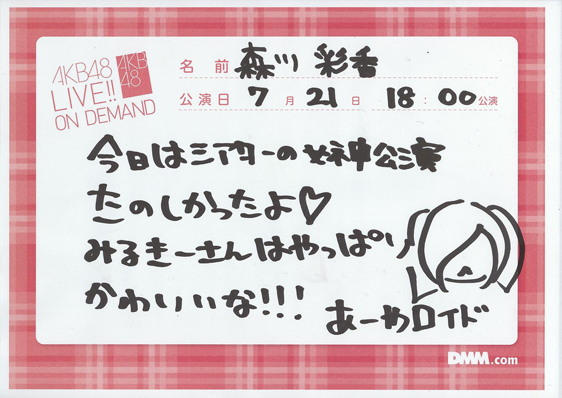 AKB48
LIVE!!
ON DEMAND
AKB
48
名前 森川 彩香
公演日 7月21日 18:00公演
今日はシアターの女神公演
たのしかったよ♡
みるきーさんはやっぱり
かわいいな!!!
あーやロイド
DMM.com